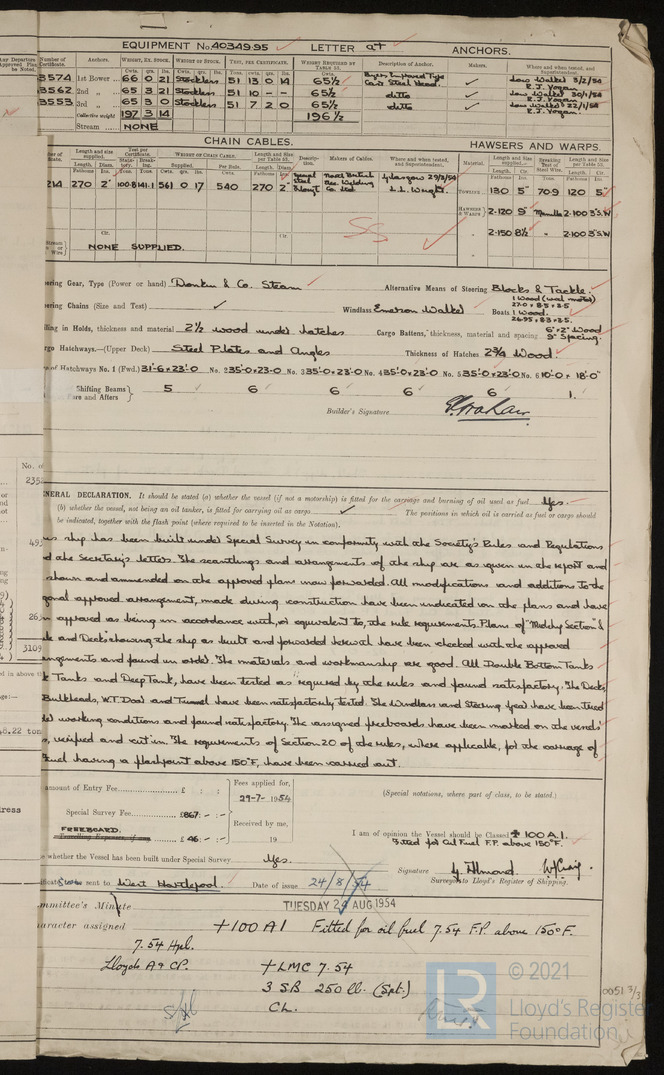 EQUIPMENT No. 40349.95 LETTER at ANCHORS.
Number of Certificate. Anchors. WEIGHT, EX. STOCK. WEIGHT OF STOCK. TEST, PER CERTIFICATE. WEIGHT REQUIRED BY TABLE 53. Description of Anchor. Makers. Where and when tested, and Superintendent.
3574 1st Bower 66 0 21 Stockless 51 13 0 14 65½ Low Walker 3/2/54 R.J. Vogan.
3562 2nd „ 65 3 21 Stockless 51 10 - - 65½ ditto Low Walker 30/1/54 R.J. Vogan.
3553 3rd „ 65 3 0 Stockless 51 7 2 0 65½ ditto Low Walker 22/1/54 R.J. Vogan.
Collective weight 197 3 14 196½
Stream NONE
CHAIN CABLES. HAWSERS AND WARPS.
214 270 2" 100.8 141.1 561 0 17 540 270 2" Glasgow 29/3/54 L.L. Wright. TOWLINE 130 5" 70.9 120 5"
HAWSERS & WARPS 2-120 9" Manilla 2-100 3"S.W
„ 2-150 8½ „ 2-100 3"S.W
NONE SUPPLIED.
ering Gear, Type (Power or hand) Donkin & Co. Steam Alternative Means of Steering Blocks & Tackle.
ering Chains (Size and Test) Windlass Emerson Walker Boats 1 Wood (and motor) 27.0 x 8.5 x 3.5
1 Wood. 26.95 x 8.3 x 3.5.
iling in Holds, thickness and material 2½ wood under hatches Cargo Battens, thickness, material and spacing 6"x2" Wood 9" Spacing.
rgo Hatchways.—(Upper Deck) Steel Plates and Angles Thickness of Hatches 2¾ Wood.
e of Hatchways No. 1 (Fwd.) 31-6 x 23'-0 No. 2 35'-0 x 23-0 No. 3 35'-0 x 23'-0 No. 4 35'-0 x 23'-0 No. 5 35'-0 x 23'-0 No. 6 10'-0 x 18'-0"
Shifting Beams 5 6 6 6 6 1.
ore and Afters
Builder's Signature
NERAL DECLARATION. It should be stated (a) whether the vessel (if not a motorship) is fitted for the carriage and burning of oil used as fuel Yes.
(b) whether the vessel, not being an oil tanker, is fitted for carrying oil as cargo The positions in which oil is carried as fuel or cargo should
be indicated, together with the flash point (where required to be inserted in the Notation).
is ship has been built under Special Survey in conformity with the Society's Rules and Regulations
d the Secretary's letters. The scantlings and arrangements of the ship are as given in the report and
shown and ammended on the approved plans now forwarded. All modifications and additions to the
ginal approved arrangement, made during construction have been indicated on the plans and have
n approved as being in accordance with, or equivalent to, the rule requirements. Plans of "Midship Section" &
le and Decks" showing the ship as built and forwarded herewith have been checked with the approved
angements and found in order. The materials and workmanship are good. All Double Bottom Tanks
k Tanks and Deep Tank, have been tested as required by the rules and found satisfactory. The Decks,
Bulkheads, W.T. Door and Tunnel have been satisfactorily tested. The Windlass and Steering Gear have been tried
der working conditions and found satisfactory. The assigned freeboards have been marked on the vessel's
s, verified and cut in. The requirements of Section 20 of the rules, where applicable, for the carriage of
Fuel having a flashpoint above 150°F, have been carried out.
amount of Entry Fee £ : : Fees applied for, 29-7-1954 (Special notations, where part of class, to be stated.)
Special Survey Fee £867 : - : - Received by me,
FREEBOARD. £ 46 : - : - 19 I am of opinion the Vessel should be Classed ✠ 100 A.1.
Fitted for Oil Fuel F.P. above 150°F.
e whether the Vessel has been built under Special Survey Yes. Signature
sent to West Hartlepool. Date of issue 24/8/54 Surveyors to Lloyd's Register of Shipping.
mmittee's Minute TUESDAY 24 AUG 1954
aracter assigned +100 A1 Fitted for oil fuel 7.54 F.P. above 150°F.
7.54 Hpl.
Lloyds A & CP. +LMC 7.54
3 SB 250 lb. (Spt.)
CL.
LR
© 2021
Lloyd's Register
Foundation
0051 3/3